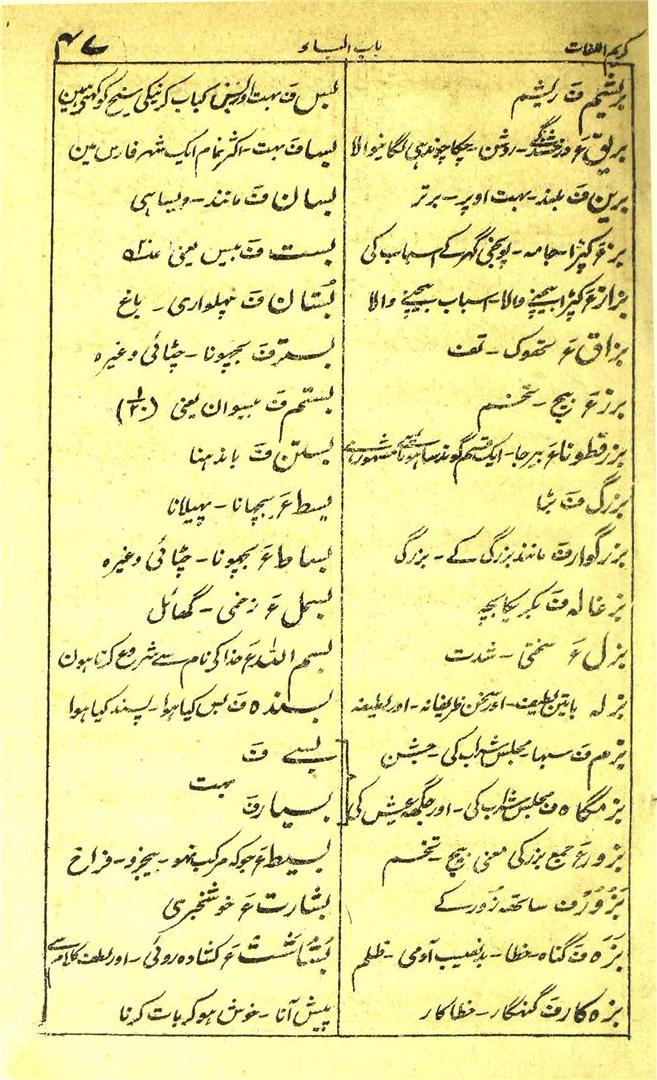 کریم اللغات
باب الباء
۴۷
بریشم ف ریشم
بریق ع درخشندگی - روشن - چکاچوندہی لگانیوالا
برین ف بلند - بہت اوپر - برتر
بز ع کپڑا - جامہ - پونجی گہر کے اسباب کی
بزاز ع کپڑا بیچنے والا - اسباب بیچنے والا
بزاق ع تھوک - تف
بزر ع بیج - تخم
بزرقطونا ع بیرجا - ایک قسم گوند سا ہوتا ہے مشہور ہے
بزرگ ف بڑا
بزرگوار ف مانند بزرگی کے - بزرگ
بزغالہ ف بکریکا بچہ
بزل ع سختی - شدت
بزلہ باتین لطیف - اور سخن ظریفانہ - اور لطیفہ
بزم ف سبھا - مجلس شراب کی - جشن
بزمگاہ ف مجلس شراب کی - اور جگہ عیش کی
بزور ع جمع بزر کی معنی بیج - تخم
بَزُوْر ف ساتھہ زور کے
بزَہ ف گناہ - خطا - بدنصیب آدمی - ظلم
بزہ کار ف گنہگار - خطا کار
بس ف بہت اور کباب کرنیکی سیخ کو کہتی ہین
بسا ف بہت - اکثر نام ایک شہر فارس مین
بسان ف مانند - ویسا ہی
بست ف بیس یعنی
بُستان ف پہلواری - باغ
بستر ف بچھونا - چٹائی وغیرہ
بستم ف بیسوان یعنی (۱/۲۰)
بستن ف باندہنا
بسط ع بچہانا - پہیلانا
بساط ع بچھونا - چٹائی وغیرہ
بسمل ع زخمی - گھائل
بسم اللہ ع خدا کی نام سے شروع کرتا ہون
بسندہ ف بس کیا ہوا - پسند کیا ہوا
بسے ف
بہت
بسیار ف
بسیط ع جو کہ مرکب نہو - بیجزو - فراخ
بشارت ع خوشخبری
بَشَاشَت ع کشادہ روئی - اور لطف کلام سے
پیش آنا - خوش ہوکر بات کرنا